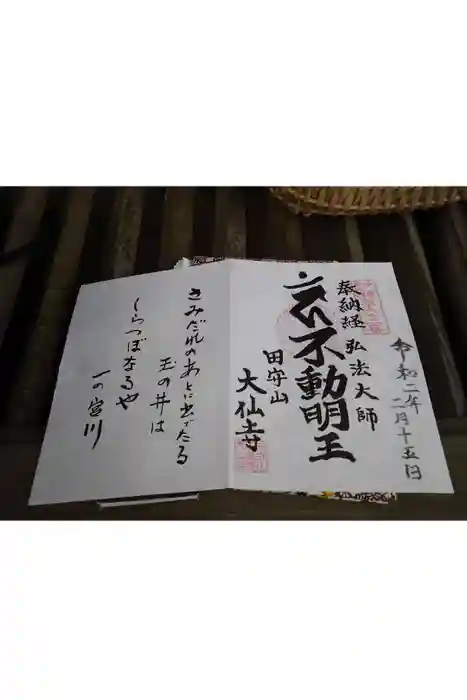 令和二年
二月十五日
奉納経 弘法大師
不動明王
田守山
大仙寺
さみだれのあとに出でたる
玉の井は
しらつぼなるや
一の宮川